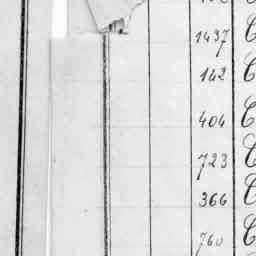 1437 C
142 C
404 C
723 C
366 C
760 C